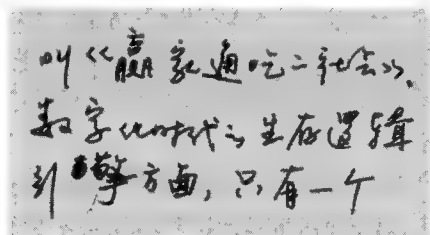 叫《赢家通吃二社会》,
数字化时代之生存逻辑
到擎方面,只有一个